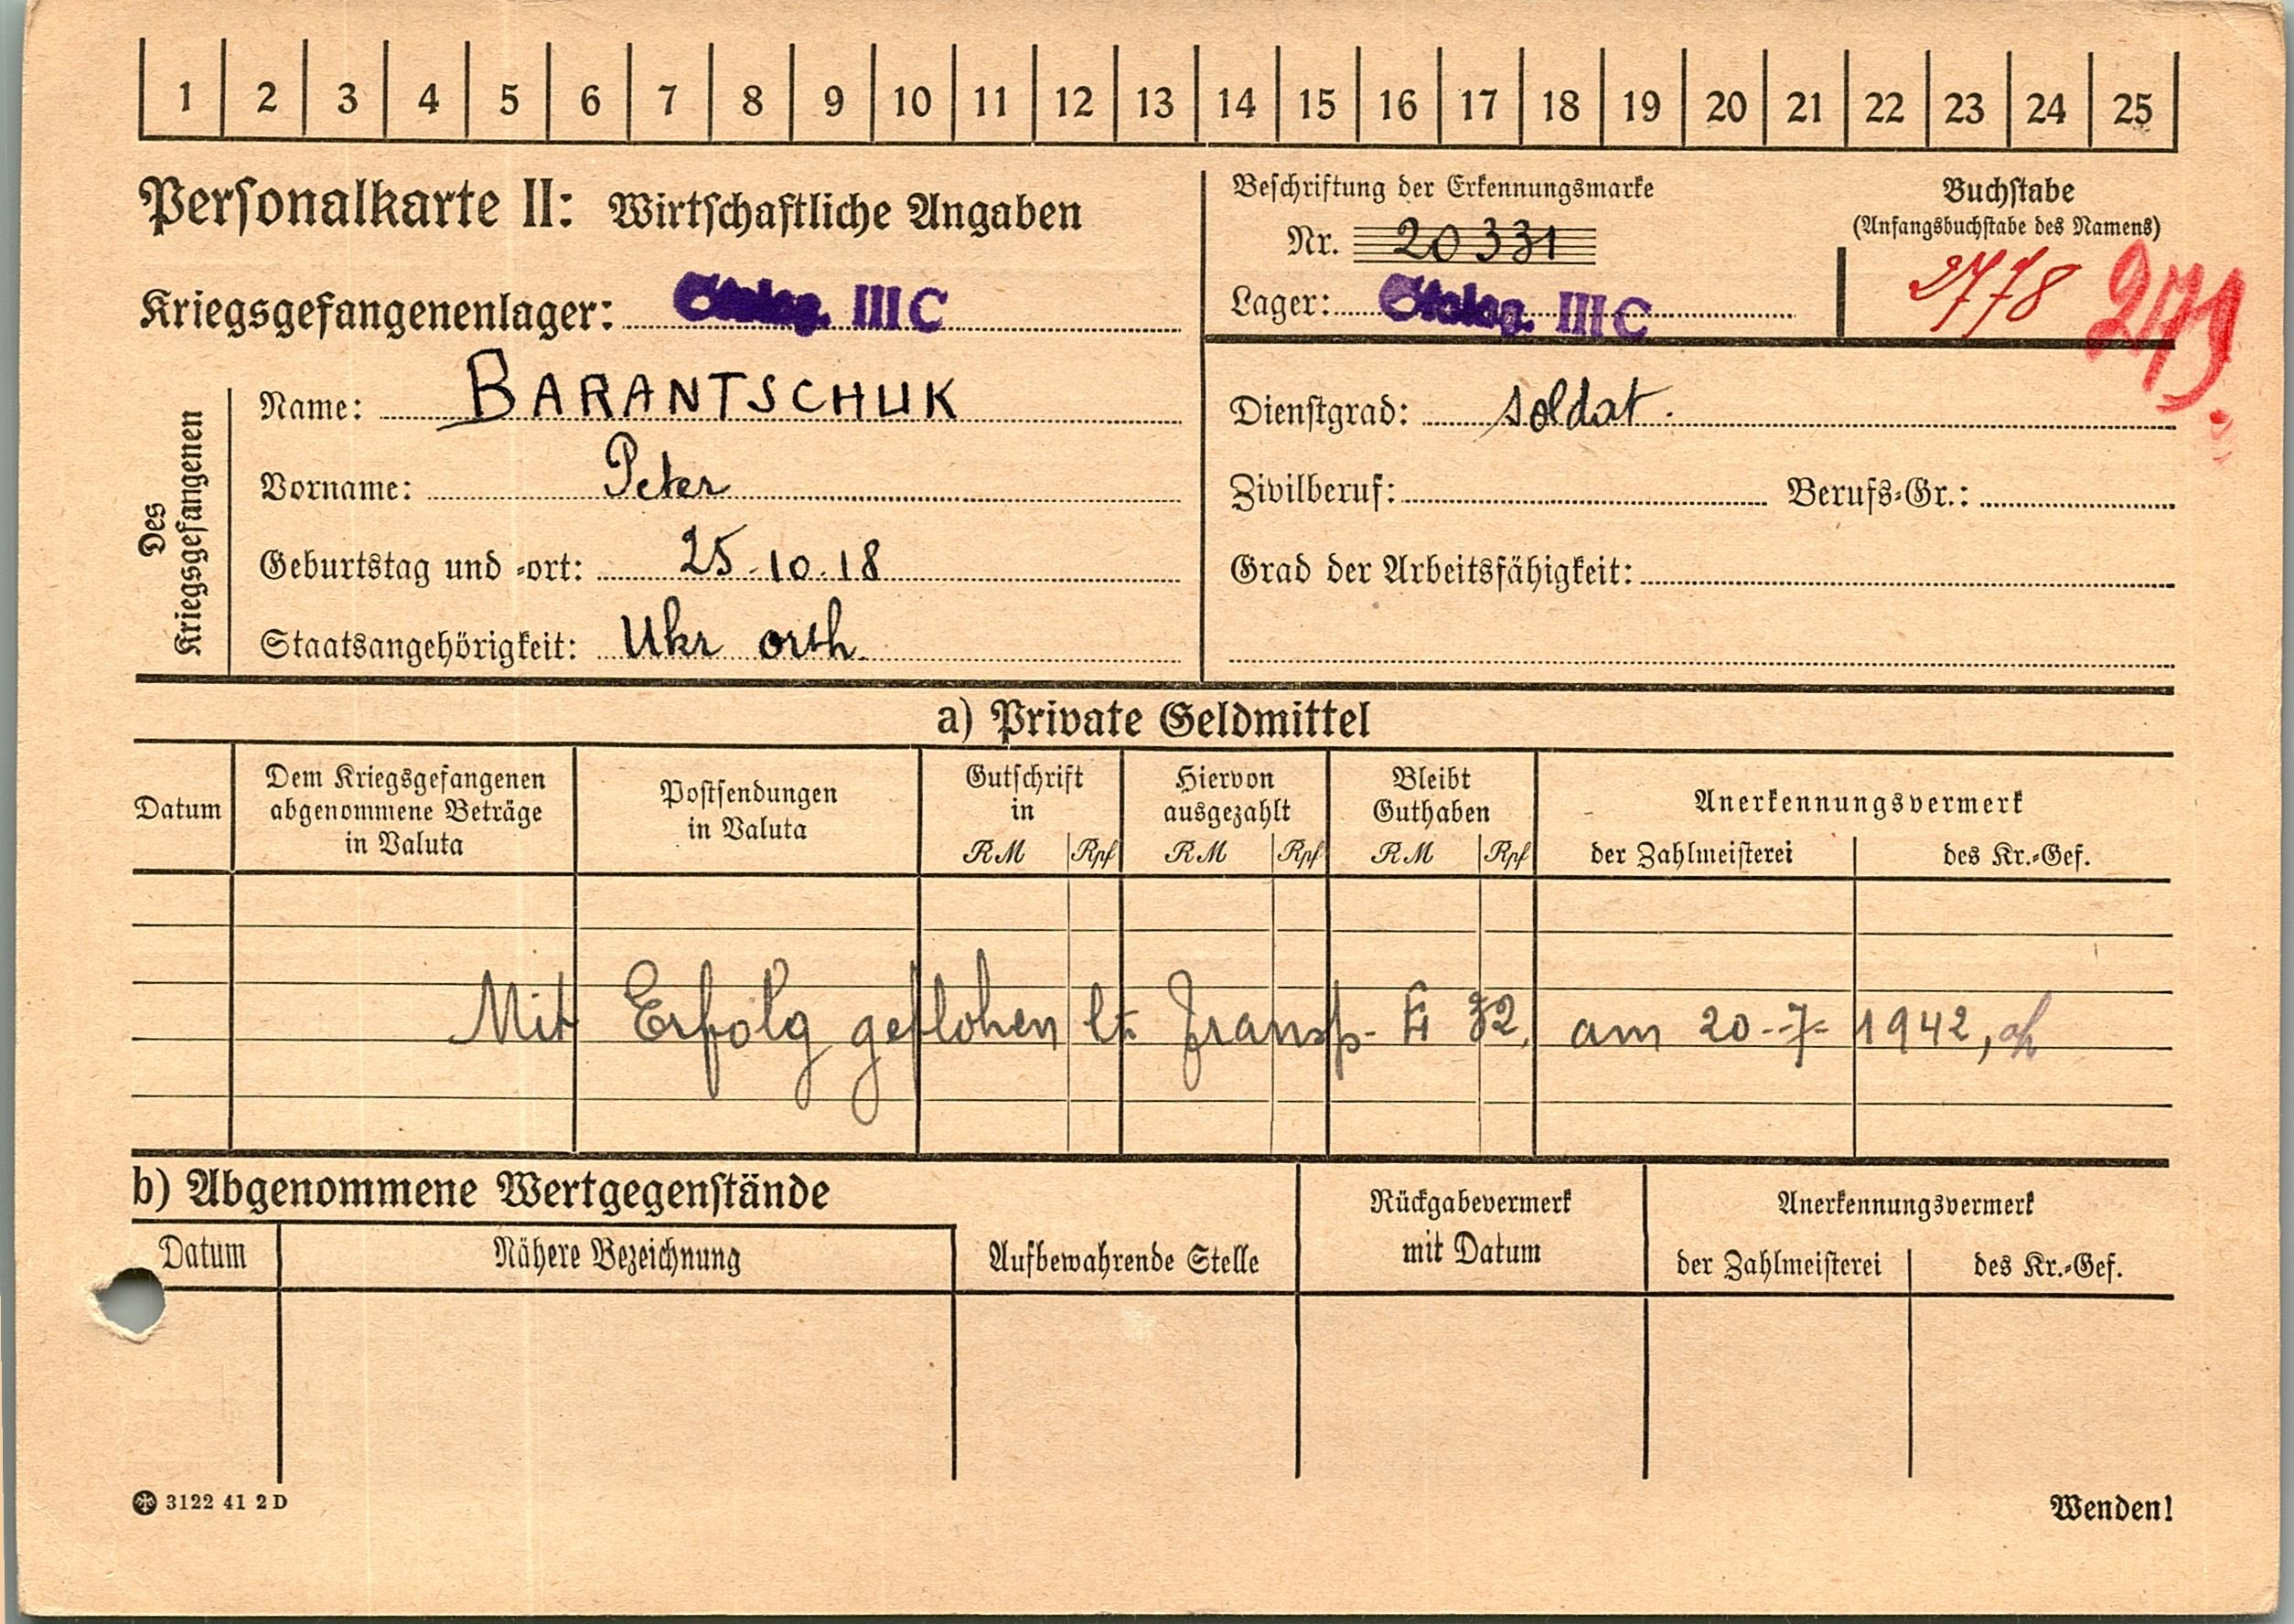 1 2 3 4 5 6 7 8 9 10 11 12 13 14 15 16 17 18 19 20 21 22 23 24 25
Personalkarte II: Wirtschaftliche Angaben
Beschriftung der Erkennungsmarke
Nr. 20331
Lager: Stalag. III C
Buchstabe
(Anfangsbuchstabe des Namens)
2778
Kriegsgefangenenlager: Stalag. III C
Des
Kriegsgefangenen
Name: BARANTSCHUK
Vorname: Peter
Geburtstag und -ort: 25.10.18
Staatsangehörigkeit: Ukr orth.
Dienstgrad: soldat.
Zivilberuf: Berufs-Gr.:
Grad der Arbeitsfähigkeit:
a) Private Geldmittel
Datum
Dem Kriegsgefangenen
abgenommene Beträge
in Valuta
Postsendungen
in Valuta
Gutschrift
in
RM Rpf
Hiervon
ausgezahlt
RM Rpf
Bleibt
Guthaben
RM Rpf
Anerkennungsvermerk
der Zahlmeisterei des Kr.-Gef.
Mit Erfolg geflohen lt. Transp. 32, am 20.7.1942,
b) Abgenommene Wertgegenstände
Datum
Nähere Bezeichnung
Aufbewahrende Stelle
Rückgabevermerk
mit Datum
Anerkennungsvermerk
der Zahlmeisterei des Kr.-Gef.
3122 41 2 D
Wenden!